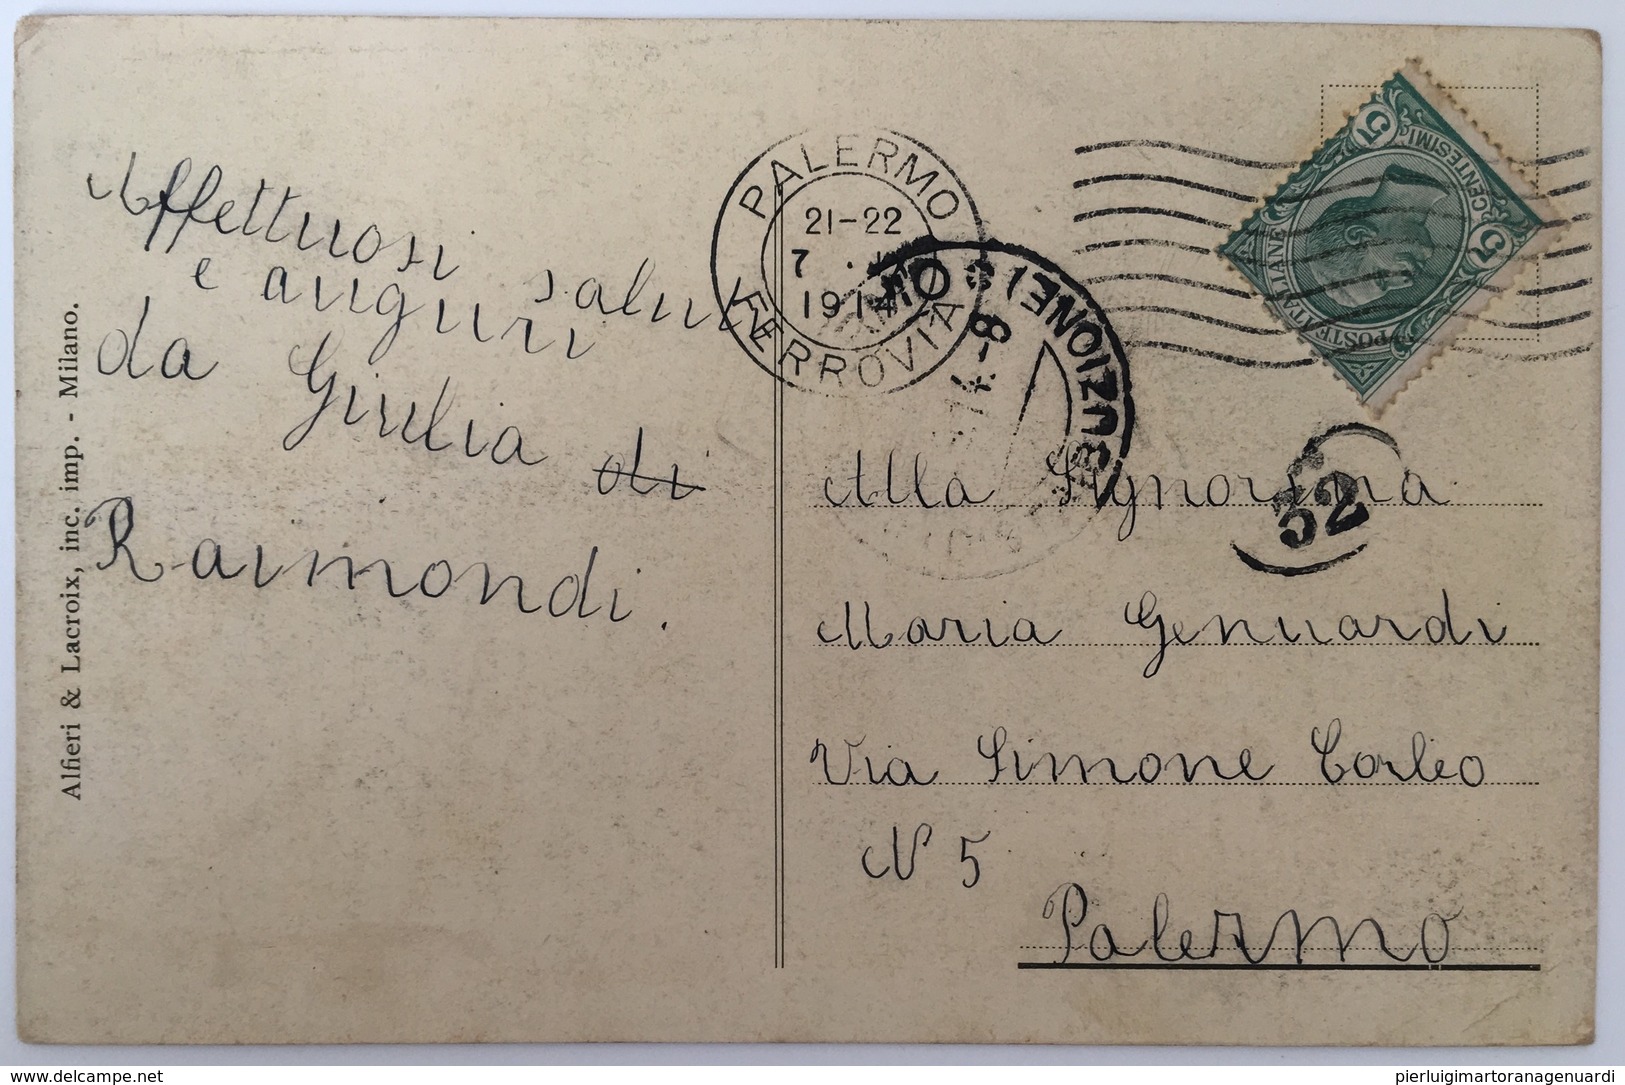 Affettuosi saluti
e auguri
da Giulia di
Raimondi.
Alfieri & Lacroix, inc. imp. - Milano.
PALERMO
21-22
7
191
FERROVIA
BUZIONE)
8-
32
POSTE ITALIANE
CENTESIMI
5
5
Alla Signorina
Maria Genuardi
Via Simone Corleo
N 5
Palermo
delcampe.net
pierluigimartoranagenuardi